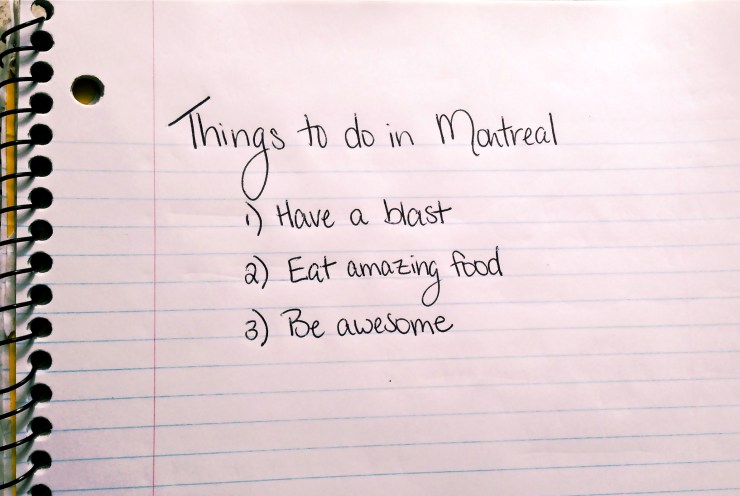 Things to do in Montreal
1) Have a blast
2) Eat amazing food
3) Be awesome